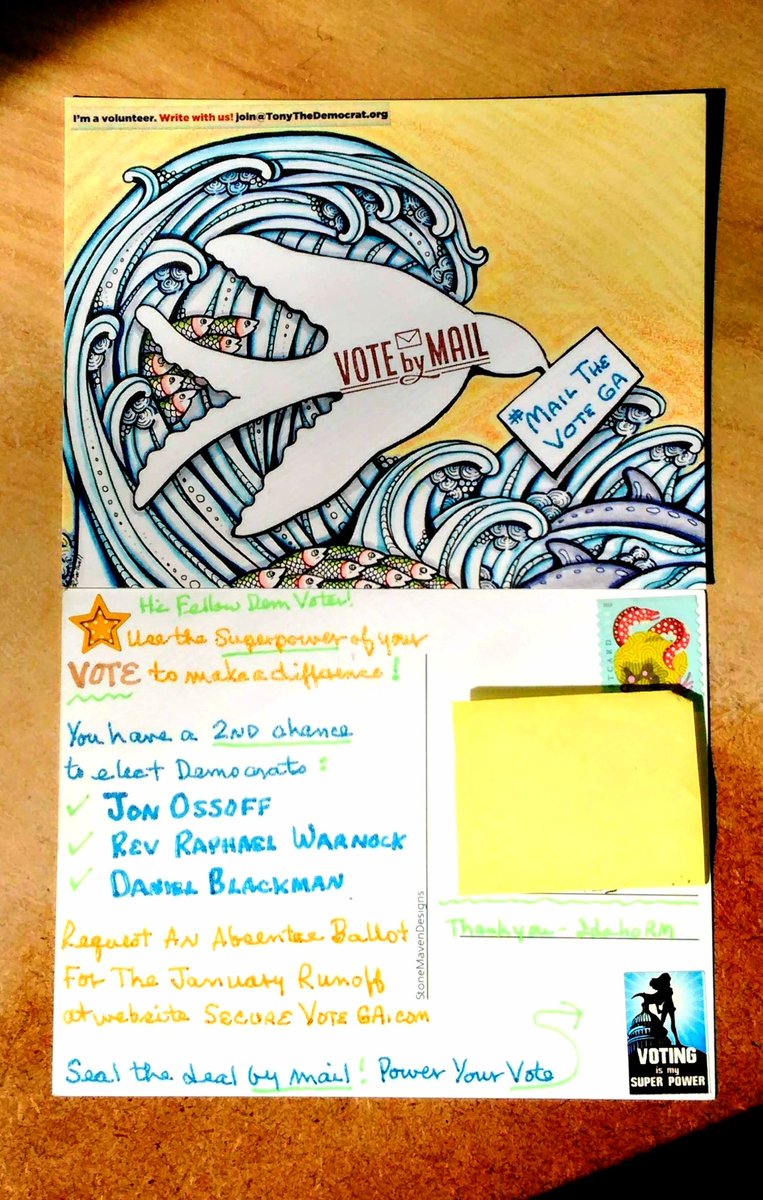 I'm a volunteer. Write with us! join@TonyTheDemocrat.org
VOTE by MAIL
#MAIL THE
VOTE GA
Hi Fellow Dem Voter!
Use the Superpower of your
VOTE to make a difference!
You have a 2ND chance
to elect Democrats:
✓ JON OSSOFF
✓ REV RAPHAEL WARNOCK
✓ DANIEL BLACKMAN
Request An Absentee Ballot
For The January Runoff
at website SECURE VOTE GA.com
Seal the deal by mail! Power Your Vote
StoneMavenDesigns
Thank you - Idaho RM
VOTING
is my
SUPER POWER